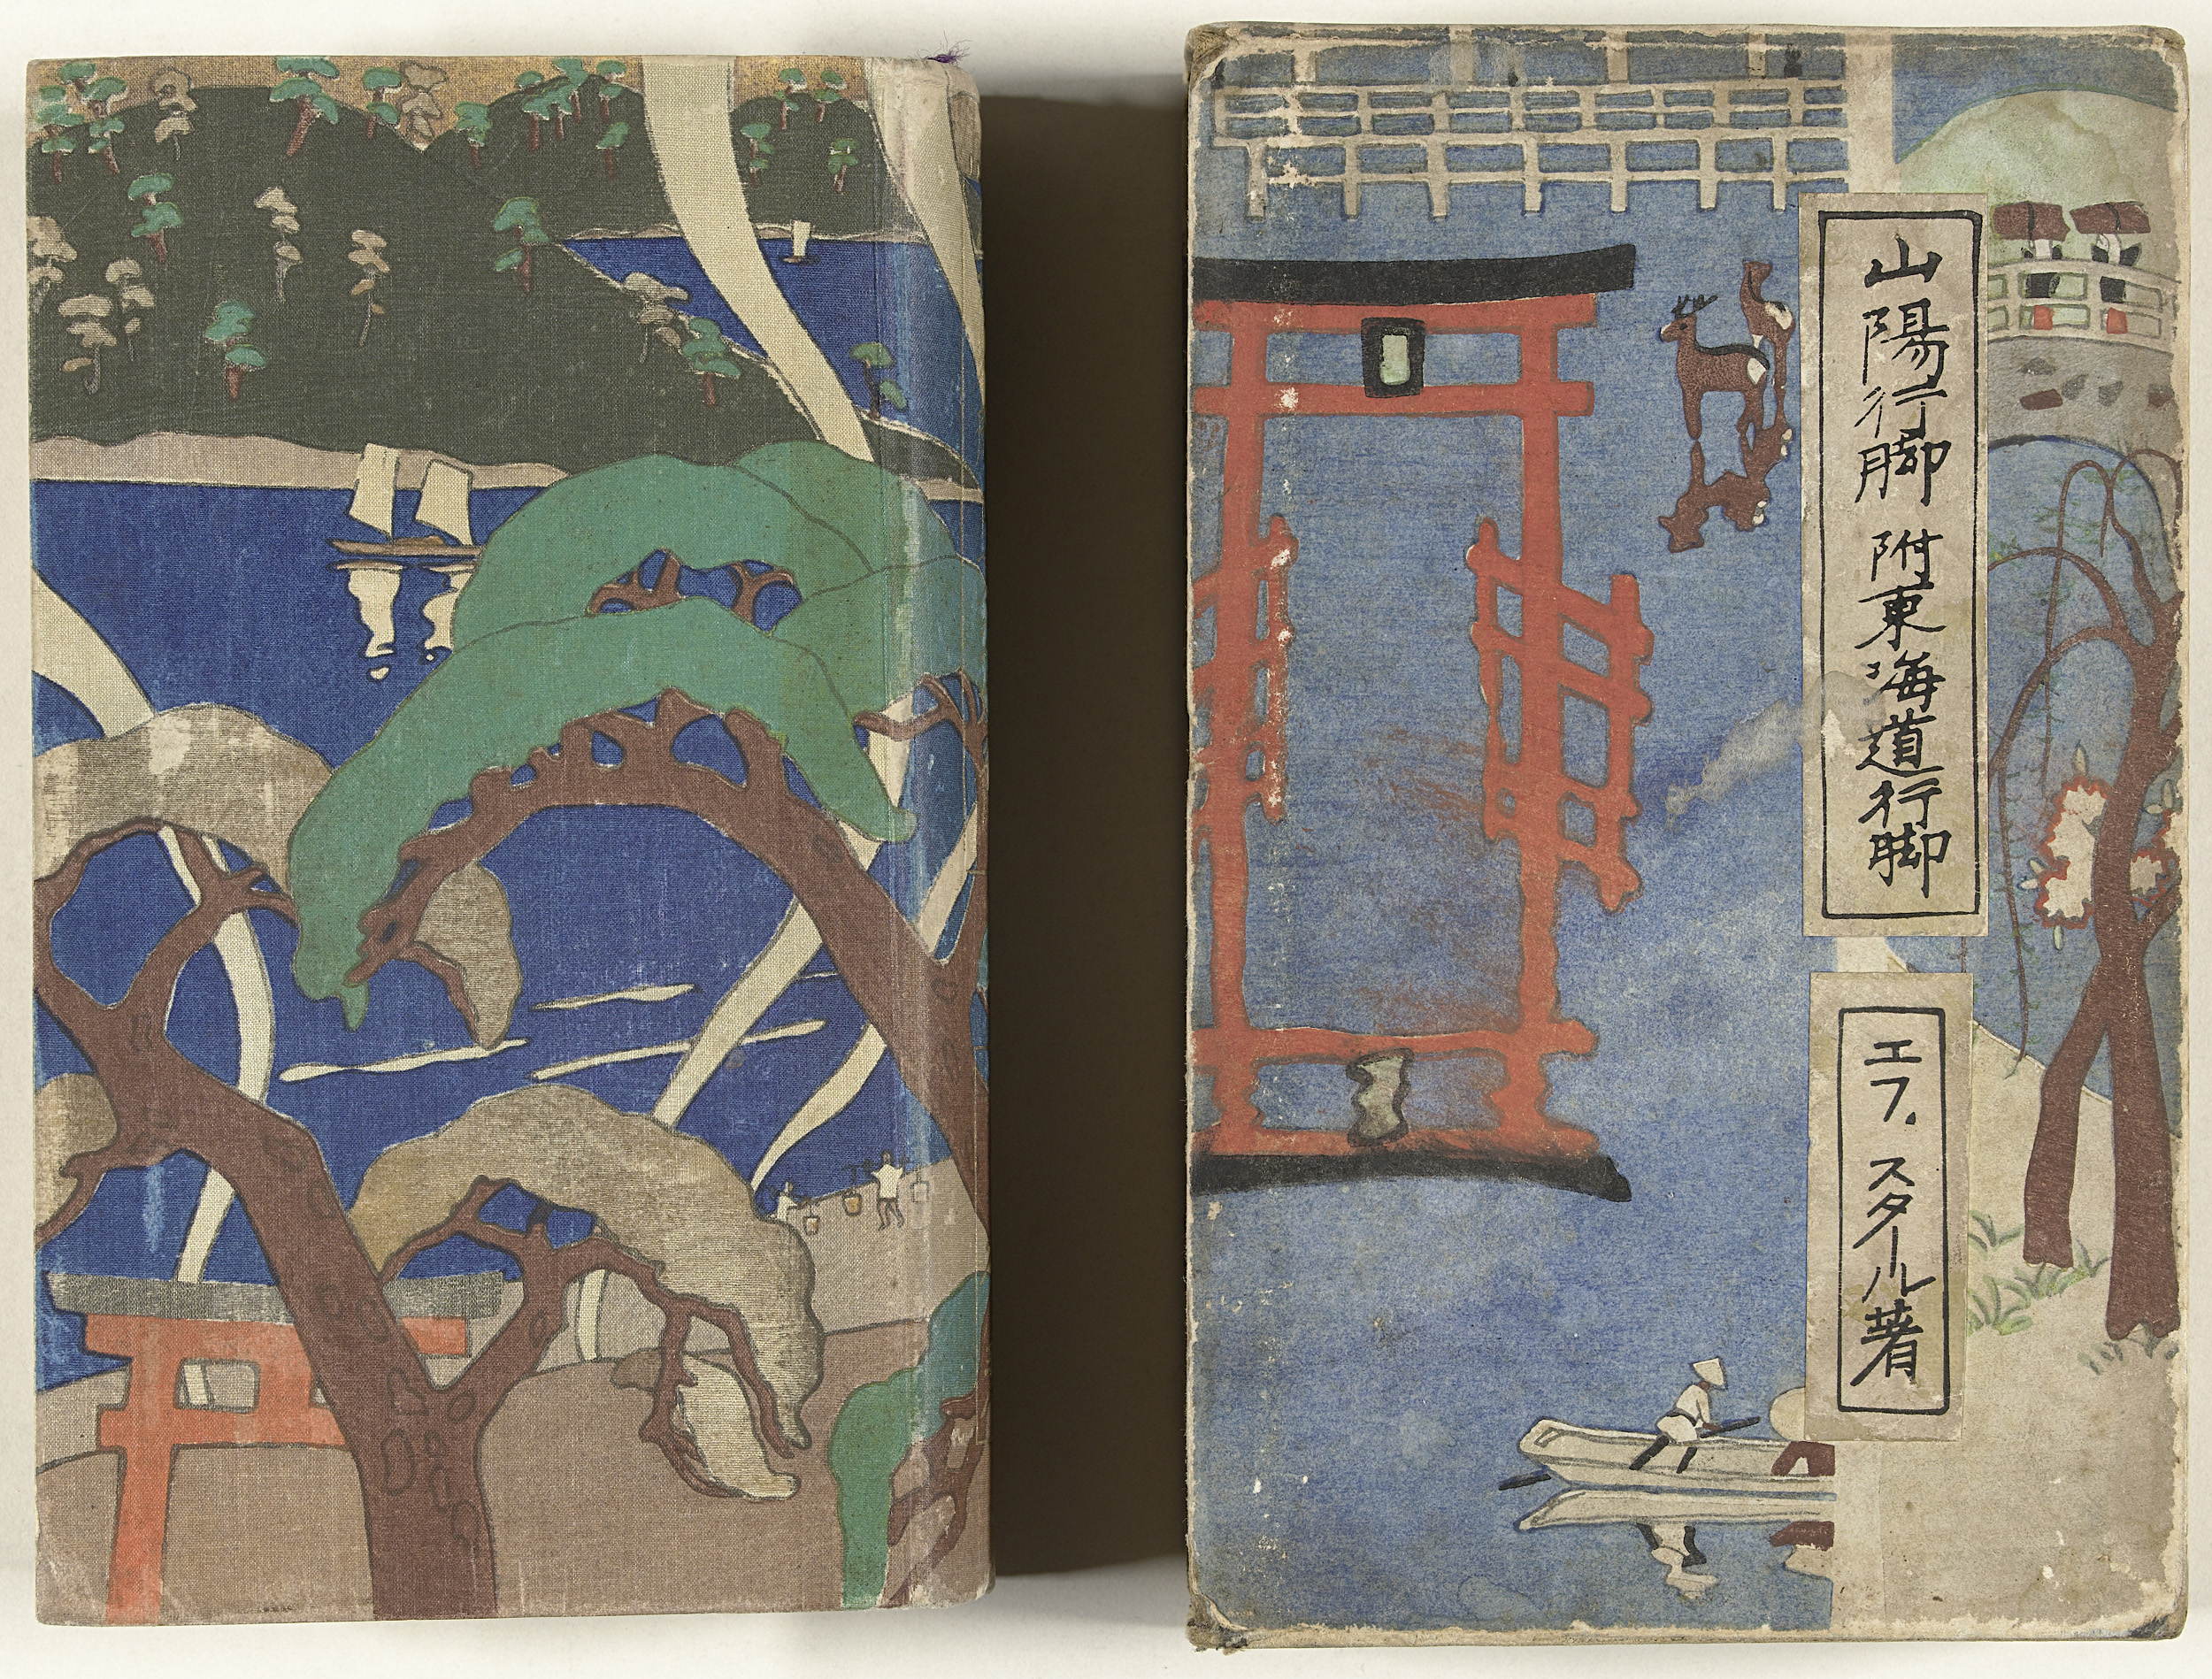 山陽行脚 附東海道行脚
エフ.スタール著